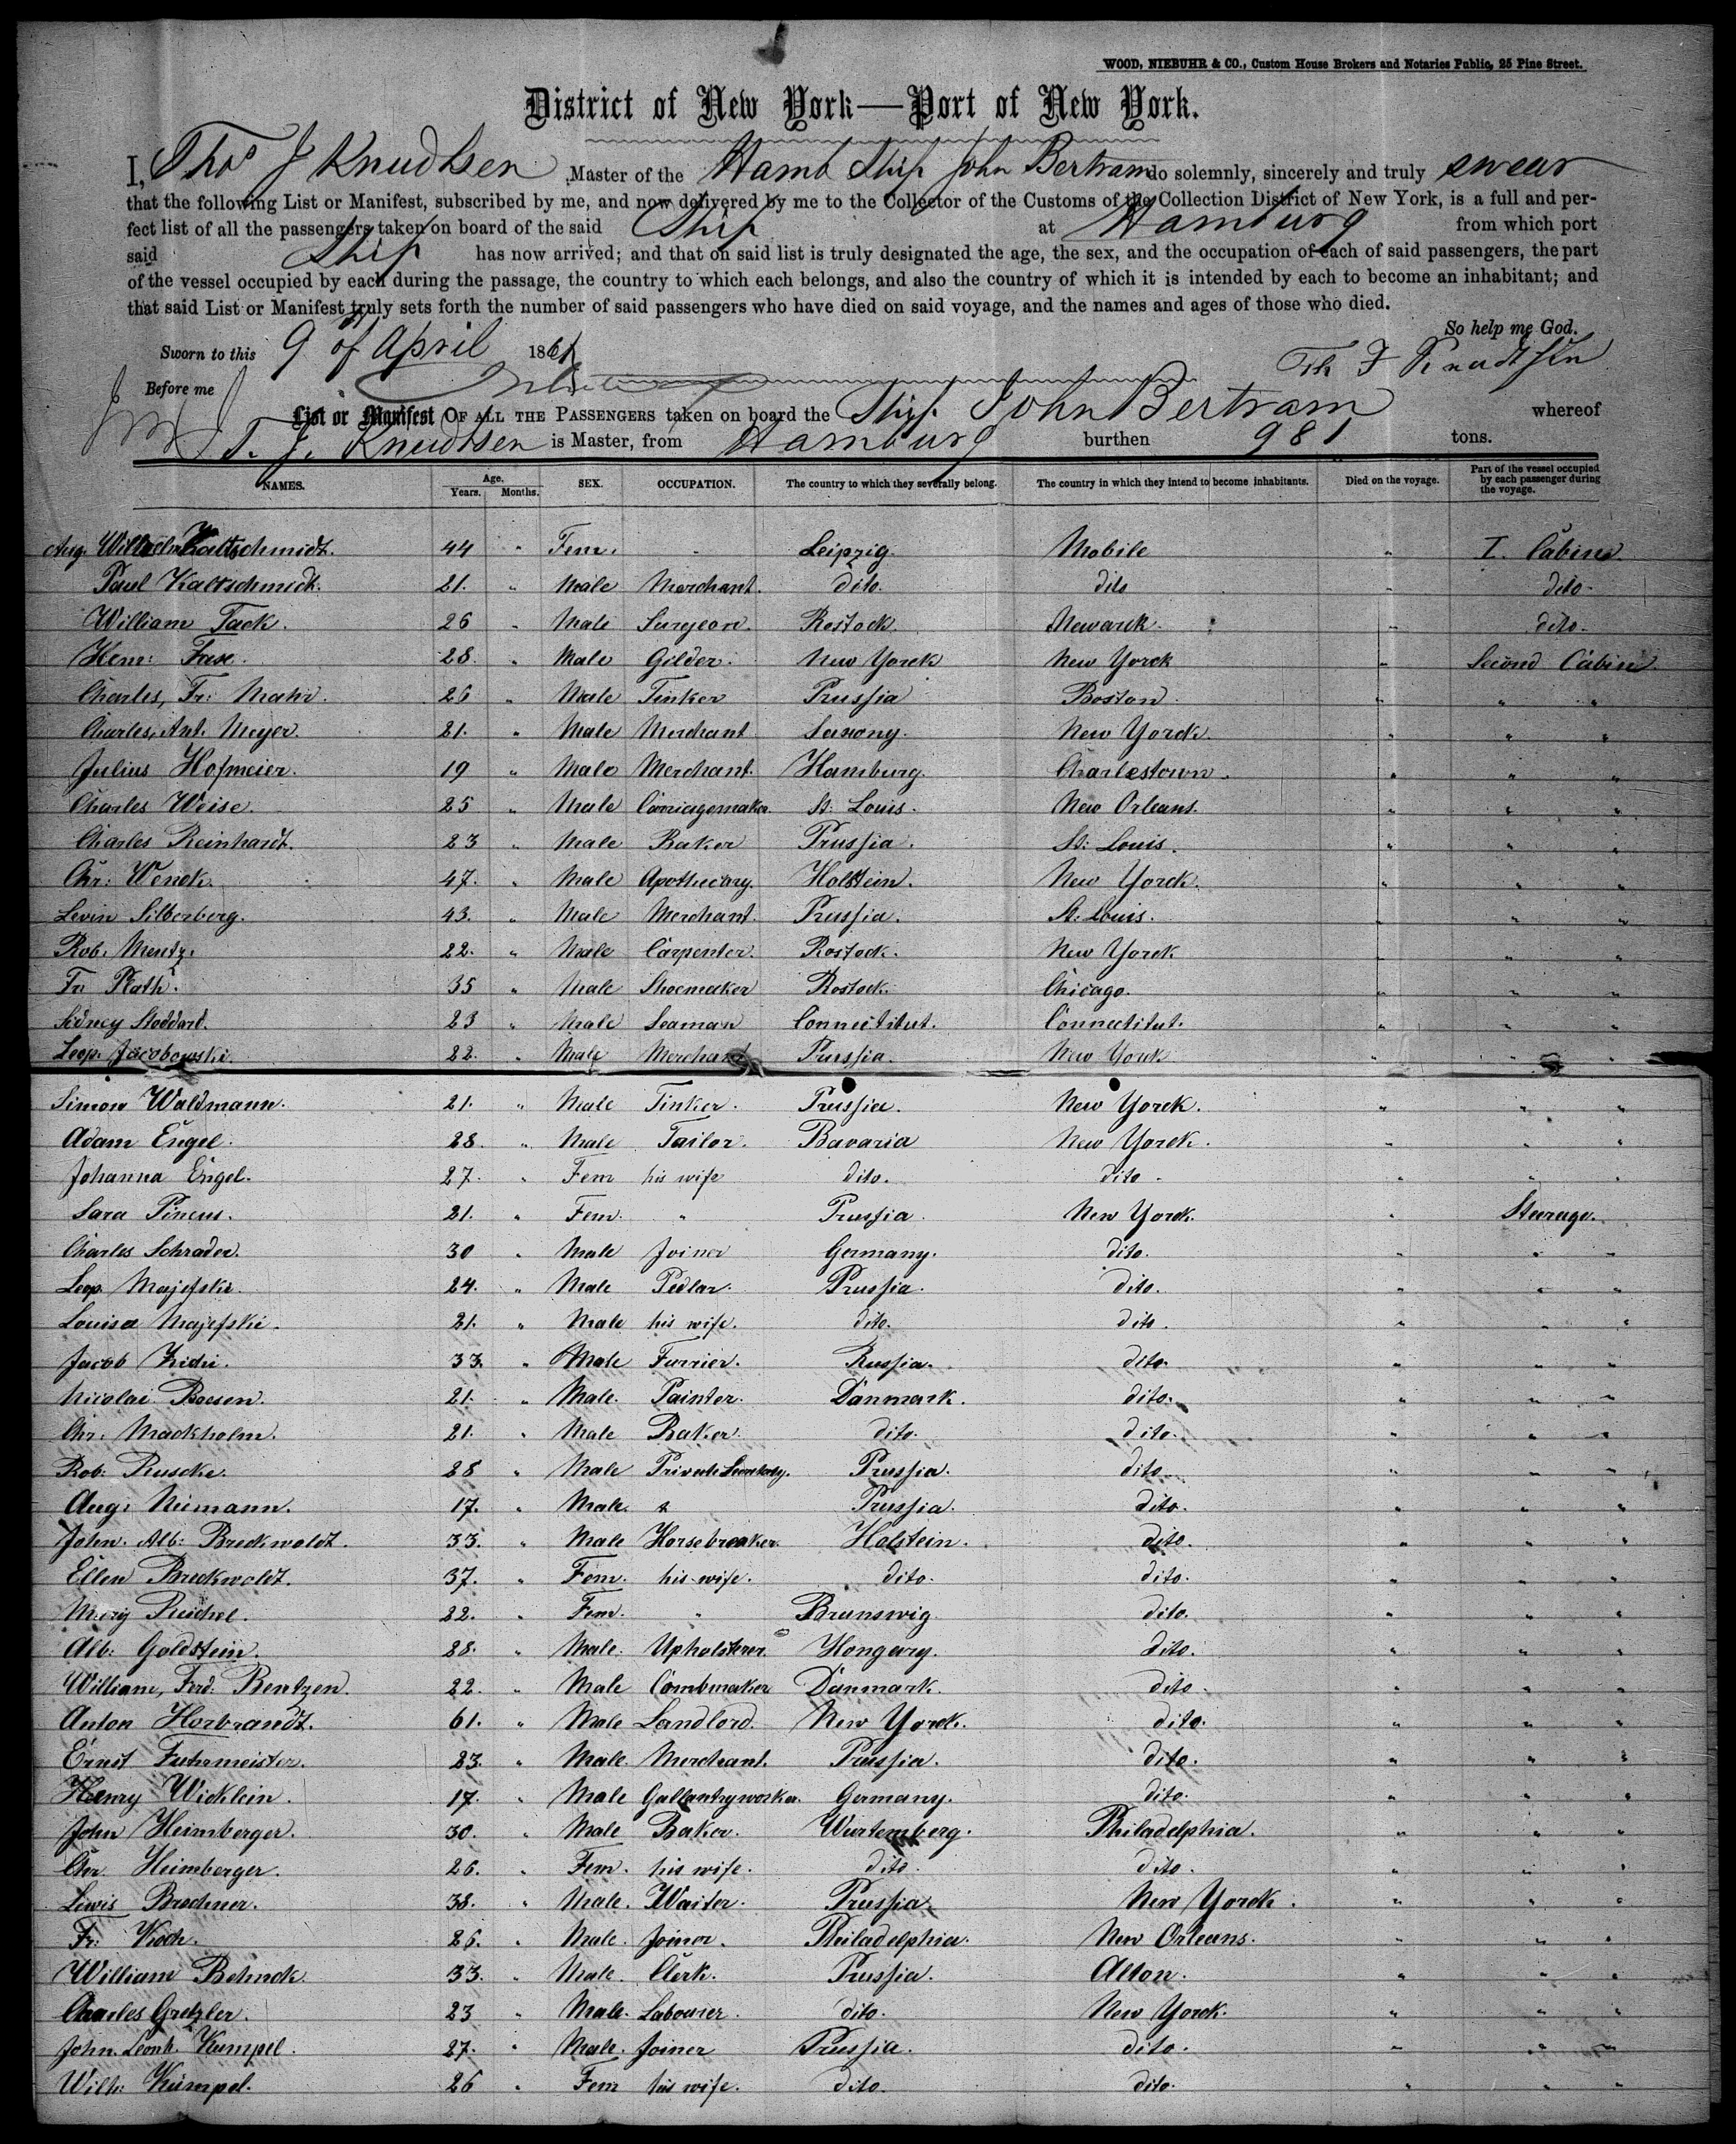 WOOD, NIEBUHR & CO., Custom House Brokers and Notaries Public, 25 Pine Street.
District of New York—Port of New York.
I, Thos J Knudtsen Master of the Hamb Ship John Bertram do solemnly, sincerely and truly swear
that the following List or Manifest, subscribed by me, and now delivered by me to the Collector of the Customs of the Collection District of New York, is a full and per-
fect list of all the passengers taken on board of the said Ship at Hamburg from which port
said Ship has now arrived; and that on said list is truly designated the age, the sex, and the occupation of each of said passengers, the part
of the vessel occupied by each during the passage, the country to which each belongs, and also the country of which it is intended by each to become an inhabitant; and
that said List or Manifest truly sets forth the number of said passengers who have died on said voyage, and the names and ages of those who died.
So help me God.
Sworn to this 9 of April 1861
Th J Knudtsen
Before me
List or Manifest OF ALL THE PASSENGERS taken on board the Ship John Bertram whereof
T. J. Knudtsen is Master, from Hamburg burthen 981 tons.
NAMES. Age. Years. Months. SEX. OCCUPATION. The country to which they severally belong. The country in which they intend to become inhabitants. Died on the voyage. Part of the vessel occupied by each passenger during the voyage.
Aug. Kaltschmidt. 44 " Fem. " Leipzig. Mobile " I. Cabine
Paul Kaltschmidt. 21. " Male Merchant. dito. dito " dito.
William Tack. 26 " Male Surgeon. Rostock Newarck. " dito.
Henr: Fase. 28. " Male Gilder. New Yorck New Yorck " Second Cabine
Charles, Fr: Mahr. 26 " Male Tinker Prussia Boston. " " "
Charles, Ant. Meyer. 21. " Male Merchant Saxony. New Yorck. " " "
Julius Hofmeier. 19 " Male Merchant. Hamburg. Charlestown. " " "
Charles Weise. 25 " Male Carriagemaker. St: Louis. New Orleans. " " "
Charles Reinhardt. 23 " Male Baker Prussia. St: Louis. " " "
Chr: Wenck. 47. " Male Apothecary. Holstein. New Yorck. " " "
Levin Silberberg. 43. " Male Merchant. Prussia. St. Louis. " " "
Rob. Mentz. 22. " Male Carpenter. Rostock. New Yorck " " "
Fr. Rath. 35 " Male Shoemaker Rostock. Chicago. " " "
Sidney Stoddard. 23 " Male Seaman Connectitut. Connectitut. " " "
Leop. Jacobowski. 22. " Male Merchant Prussia. New Yorck " " "
Simon Waldmann. 21. " Male Tinker. Prussia. New Yorck. " " "
Adam Engel. 28. " Male Tailor. Bavaria New Yorck. " " "
Johanna Engel. 27. " Fem his wife dito. dito. " " "
Sara Pincus. 21. " Fem. " Prussia. New Yorck. " Steerage.
Charles Schrader. 30 " Male Joiner Germany. dito. " " "
Leop. Majefski. 24. " Male Pedlar. Prussia. dito. " " "
Louisa Majefski. 21. " Male his wife. dito. dito. " " "
Jacob 33. " Male Furrier. Russia. dito. " " "
Nicolai Boesen. 21. " Male. Painter. Danmark. dito. " " "
Chr. Mackholm. 21. " Male Baker. dito. dito. " " "
Rob: Ruscke. 28 " Male Private Secretary. Prussia. dito. " " "
Aug: Niemann. 17. " Male. " Prussia. dito. " " "
John. Alb: Breckwoldt. 33. " Male Horsebreaker. Holstein. dito. " " "
Ellen Breckwoldt. 37. " Fem. his wife. dito. dito. " " "
Mary Reichel. 22. " Fem. " Brunswig. dito. " " "
Alb: Goldstein. 28. " Male. Upholsterer. Hongary. dito. " " "
William, Ferd: Bentzen. 22. " Male Combmaker Danmark. dito. " " "
Anton Horbrandt. 61. " Male Landlord. New Yorck. dito. " " "
Ernst Fuhrmeister. 23. " Male. Merchant. Prussia. dito. " " "
Henry Wicklein. 17. " Male Gallantryworker. Germany. dito. " " "
John Heimberger. 30. " Male Baker. Würtemberg. Philadelphia. " " "
Chr. Heimberger. 26. " Fem. his wife. dito. dito. " " "
Lewis Brechner. 38. " Male. Waiter. Prussia. New Yorck. " " "
Fr: Koch. 26. " Male. Joiner. Philadelphia. New Orleans. " " "
William Behnck. 33. " Male. Clerk. Prussia. Alton. " " "
Charles Gretzler. 23 " Male. Labourer. dito. New Yorck. " " "
John. Leonh. Kümpel. 27. " Male. Joiner Prussia. dito. " " "
Wilh: Kümpel. 26 " Fem his wife. dito. dito. " " "